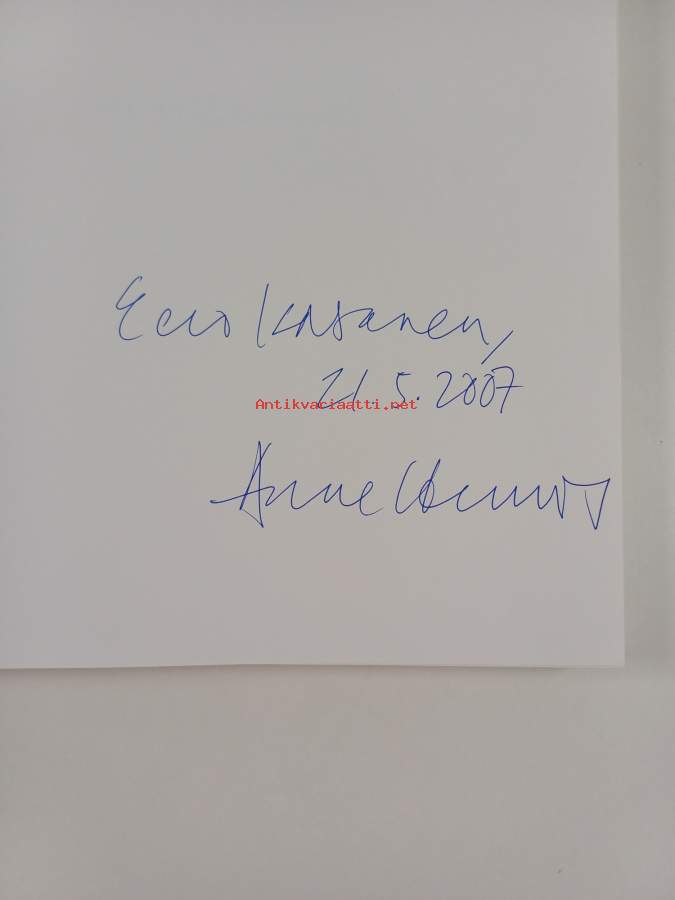 Eero Kasanen,
21.5.2007
Antikvaciaatti.net
Anne